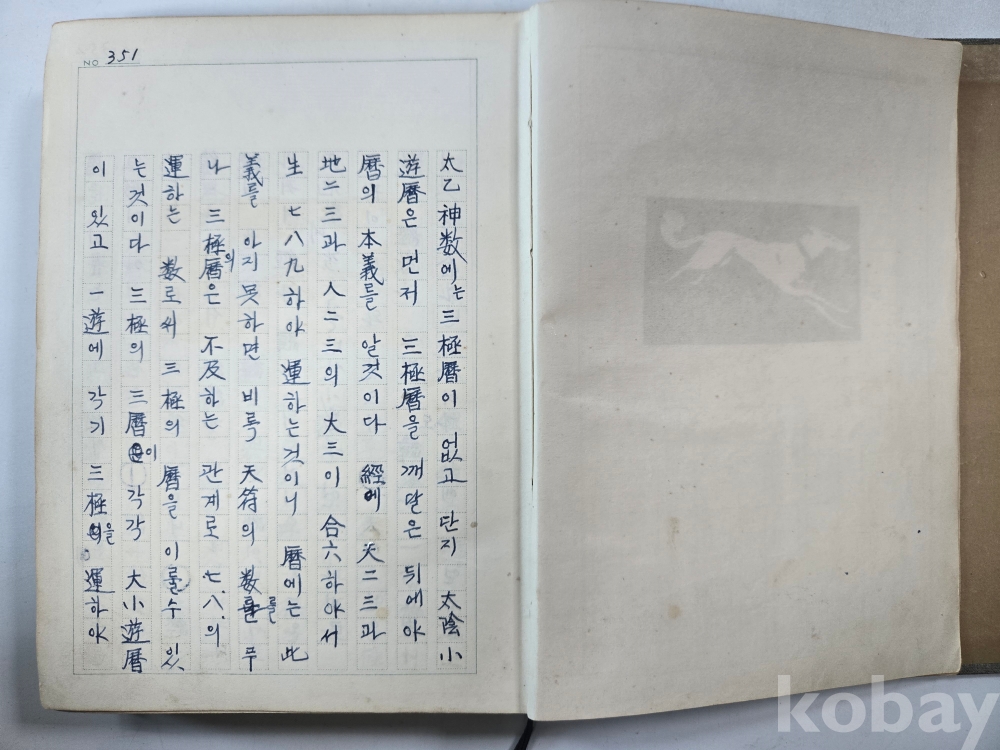 NO 351
太乙神数에는 三極曆이 없고 단지 太陰小
遊曆은 먼저 三極曆을 깨달은 뒤에야
曆의 本義를 알것이다 經에 天二三과
地二三과 人二三의 大三이 合六하야서
生 七八九하야 運하는것이니 曆에는 此
義를 아지못하면 비록 天符의 数를 푸
나 三極曆의은 不及하는 관계로 七.八.의
運하는 数로써 三極의 曆을 이룰수 있
는것이다 三極의 三曆이 각각 大小遊曆
이 있고 一遊에 각기 三極을 運하야
kobay